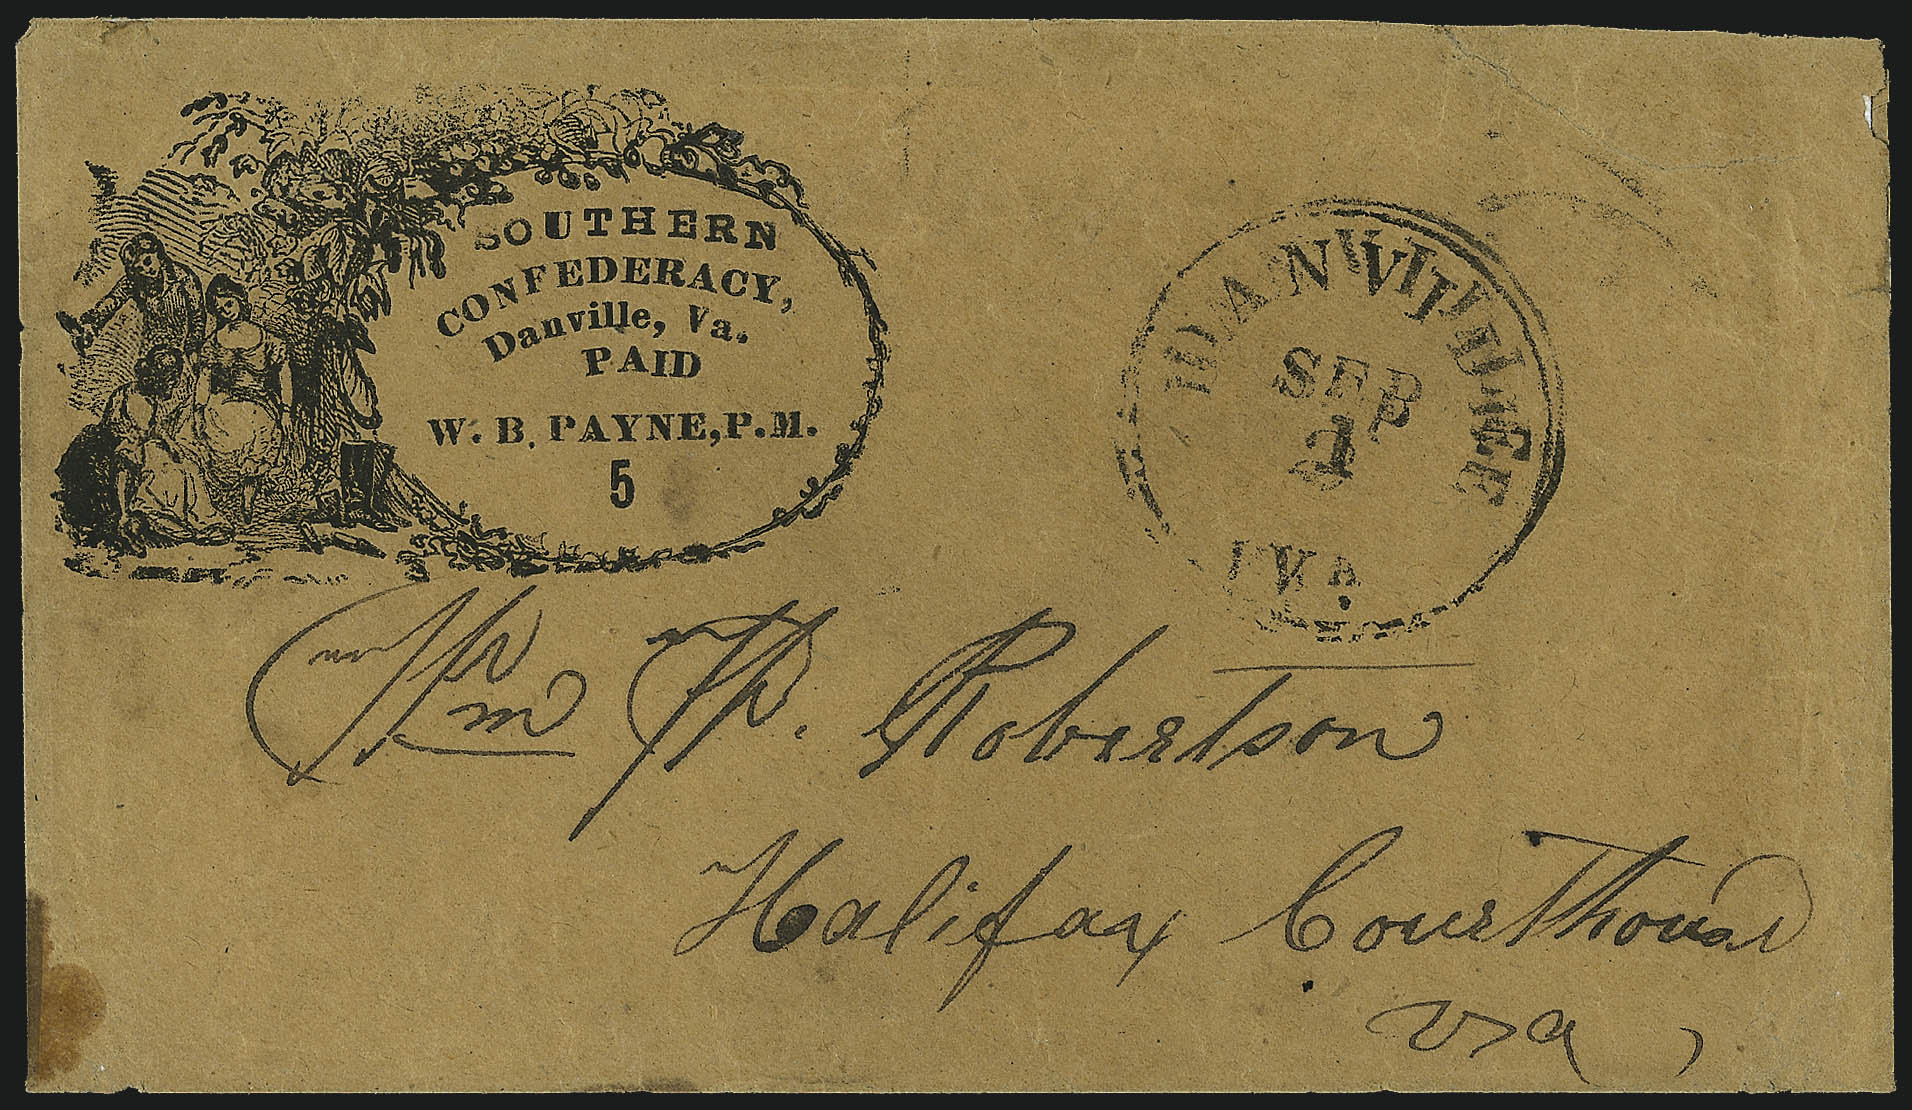 SOUTHERN
CONFEDERACY,
Danville, Va.
PAID
W. B. PAYNE, P.M.
5
DANVILLE
SEP
VA.
Wm P. Robertson
Halifax Courthouse
Va